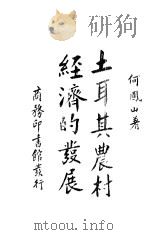 何鳳山著
土耳其農村
經濟的發展
商務印書館發行
mtoou.info